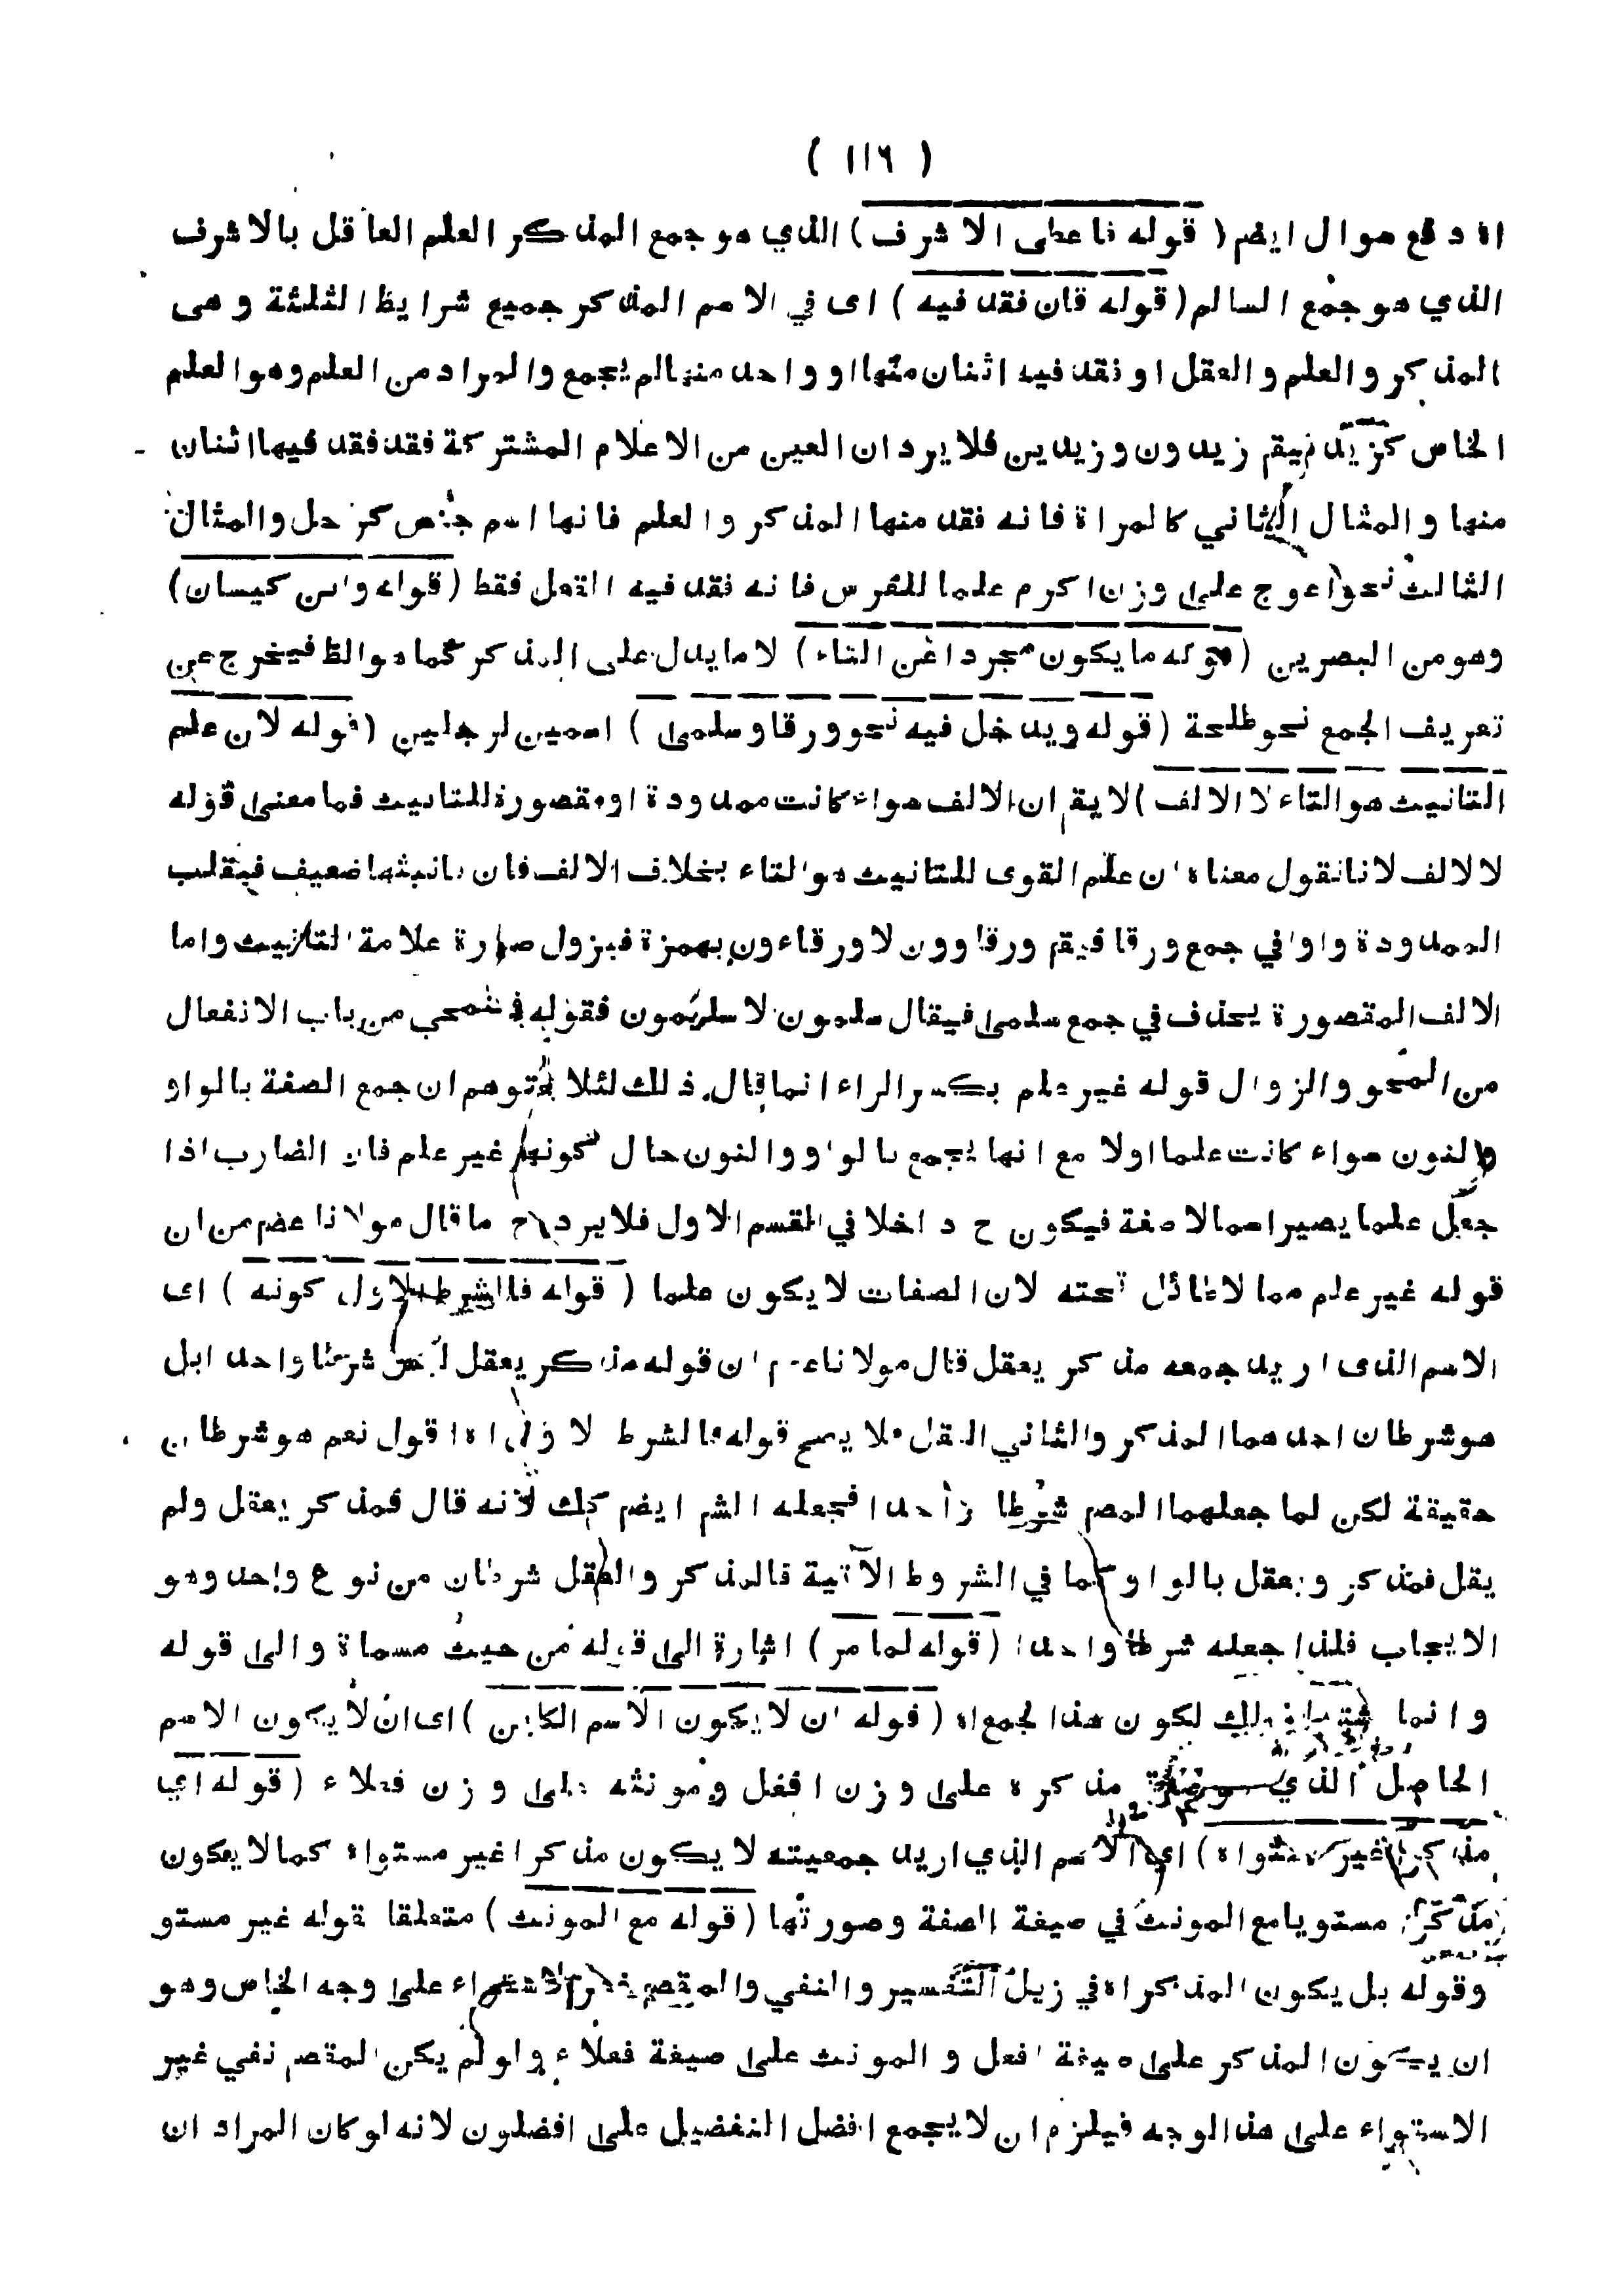 ( ١١٦ )
اذ دفع سوال ايضم ( قوله فاعطى الاشرف ) الذي هو جمع المذكر العلم العاقل بالاشرف
الذي هو جمع السالم ( قوله فان فقد فيه ) اى في الاسم المذكر جميع شرايط الثلثة و هى
المذكر و العلم و العقل او فقد فيه اثنان منها او واحد منها لم يجمع والمراد من العلم وهو العلم
الخاص كزيد فيقم زيدون وزيدين فلا يرد ان العين من الاعلام المشتركة فقد فقد فيها اثنان
منها و المثال الثاني كالمراة فانه فقد منها المذكر والعلم فانها اسم جنس كرجل والمثال
الثالث نحو اعوج على وزن اكرم علما للفرس فانه فقد فيه العقل فقط ( قوله وابن كيسان )
وهو من البصرين ( قوله ما يكون مجردا عن التاء ) لا ما يدل على المذكر كما هو الظ فيخرج عن
تعريف الجمع نحو طلحة ( قوله ويدخل فيه نحو ورقا وسلمى ) اسمين لرجلين ( قوله لان علم
التانيث هو التاء لا الالف ) لا يقم ان الالف سواء كانت ممدودة او مقصورة للتانيث فما معنى قوله
لا لالف لانا نقول معناه ان علم القوى للتانيث هو التاء بخلاف الالف فان تانيثها ضعيف فينقلب
الممدودة واوا في جمع ورقا فيقم ورقاوون لا ورقاءون بهمزة فيزول صورة علامة التانيث واما
الالف المقصورة يحذف في جمع سلمى فيقال سلمون لا سليمون فقوله فينمحي من باب الانفعال
من المحو والزوال قوله غير علم بكسر الراء انما قال ذلك لئلا يتوهم ان جمع الصفة بالواو
والنون سواء كانت علما اولا مع انها يجمع بالواو والنون حال كونها غير علم فان الضارب اذا
جعل علما يصير اسما لا صفة فيكون ح داخلا في القسم الاول فلا يرد ح ما قال مولانا عضم من ان
قوله غير علم مما لا طائل تحته لان الصفات لا يكون علما ( قوله فالشرط الاول كونه ) اى
الاسم الذى اريد جمعه مذكر يعقل قال مولانا ان قوله مذكر يعقل ليس شرطا واحدا بل
هو شرطان احدهما المذكر والثاني العقل فلا يصح قوله فالشرط الاول اه اقول نعم هو شرطان
حقيقة لكن لما جعلهما المصم شرطا واحدا فجعله الشم ايضم كك لانه قال فمذكر يعقل ولم
يقل فمذكر و يعقل بالواو كما في الشروط الآتية فالمذكر والعقل شرطان من نوع واحد وهو
الايجاب فلذا جعله شرطا واحدا ( قوله لما مر ) اشارة الى قوله من حيث مسماة و الى قوله
و انما لكون هذا الجمع اه ( قوله ان لا يكون الاسم الكاين ) اى ان لا يكون الاسم
الحاصل الذي مذكره على وزن افعل و مونثه على وزن فعلاء ( قوله اي
مذكرا غير مستواه ) اى الاسم الذي اريد جمعيته لا يكون مذكرا غير مستواه كما لا يكون
مذكرا مستويا مع المونث في صيغة الصفة وصورتها ( قوله مع المونث ) متعلقا قوله غير مستو
وقوله بل يكون المذكر اه في زيل التفسير والنفي والمقصم الاستواء على وجه الخاص وهو
ان يكون المذكر على صيغة افعل و المونث على صيغة فعلاء و لو لم يكن المقصم نفي غير
الاستواء على هذا الوجه فيلزم ان لا يجمع افضل التفضيل على افضلون لانه لو كان المراد ان